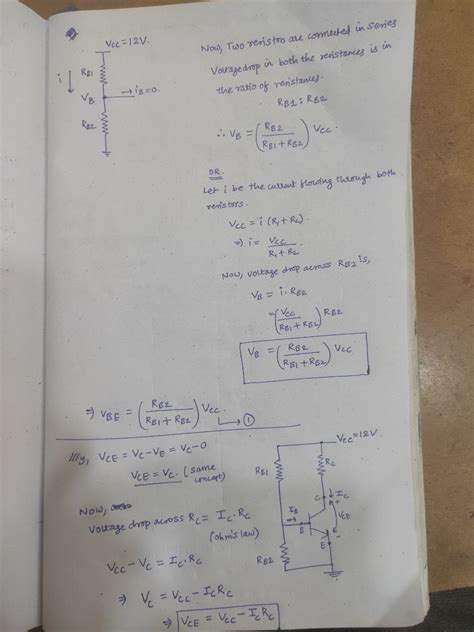 VCC = 12V.
RB1
i ↓
VB
→ iB = 0.
RB2
Now, Two resistors are connected in series
Voltage drop in both the resistances is in
the ratio of resistances.
RB1 : RB2
∴ VB = (RB2 / (RB1 + RB2)) VCC.
OR.
Let i be the current flowing through both
resistors.
VCC = i (R1 + R2).
⇒ i = VCC / (R1 + R2)
Now, voltage drop across RB2 is,
VB = i · RB2
= (VCC / (RB1 + RB2)) RB2
VB = (RB2 / (RB1 + RB2)) VCC
⇒ VBE = (RB2 / (RB1 + RB2)) VCC. → ①
lllly, VCE = VC - VE = VC - 0
VCE = VC. (same
concept)
Now,
Voltage drop across RC = IC · RC
(ohm's law)
VCC - VC = IC · RC
⇒ VC = VCC - IC RC
⇒ VCE = VCC - IC RC
VCC = 12V.
RB1
RC
C
↓ IC
+
IB
B
VCE
E
-
RB2